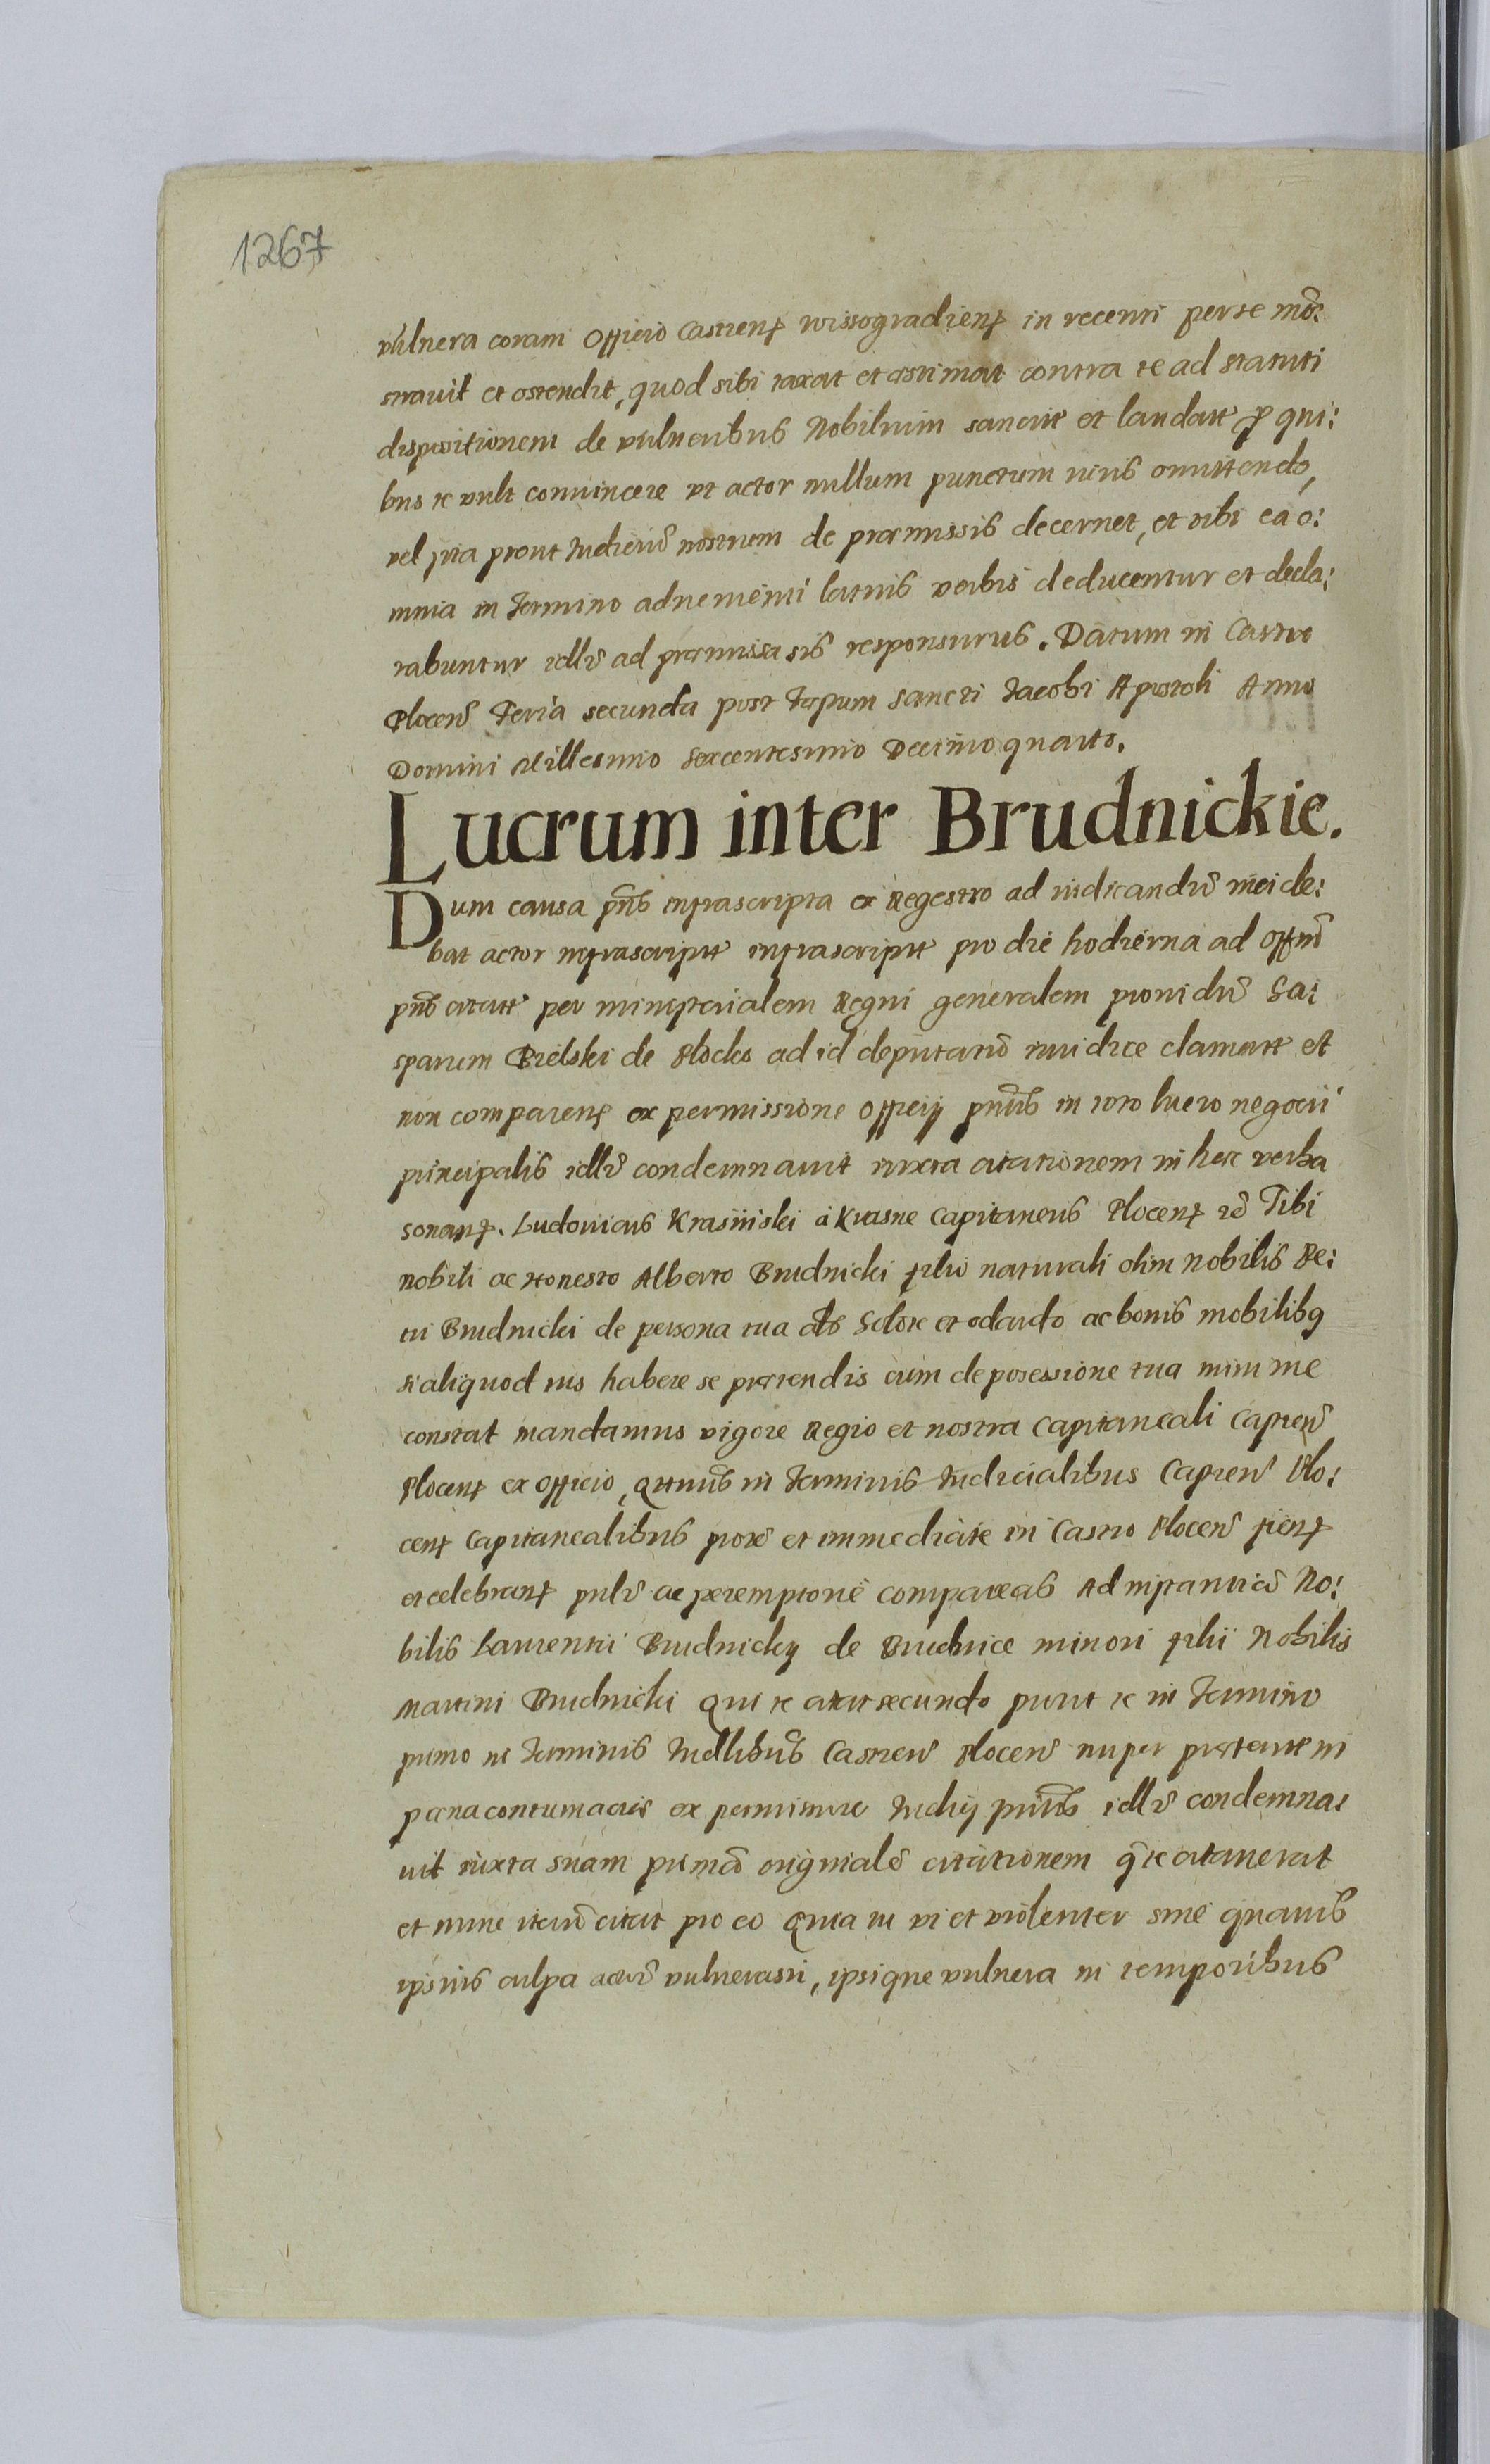 1267
vulnera coram Officio Castrenẛ wissogradienẛ in recenti per te mõ:
strauit et ostendit, quod sibi taxat et æstimat contra te ad statuti
dispositionem de vulneribus Nobilium sancitæ et laudatæ p qui:
bus te vult conuincere vt actor nullum punctum iuris omittendo,
vel ita prout Iudiciũ nostrum de præmissis decernet, et vbi ea o:
mnia in termino aduenienti latius verbis deducentur et decla:
rabuntur idllr ad præmissa sis responsurus. Datum in Castro
Plocen̄ Feria secunda post festum Sancti Iacobi Apostoli Anno
Domini Millesimo Sexcentesimo Decimoquarto.
Lucrum inter Brudnickie.
Dum causa pn̄s infrascripta ex Regestro ad iudicandũ incide:
bat actor infrascriptt infrascriptt pro die hodierna ad Offm̄
pn̄s citatt per ministerialem Regni generalem prouidũ Ga:
sparum Bielski de Plocko ad id deputatũ iuridice clamatt et
non comparenẛ ex permissione Officij pn̄tis in toto lucro negocii
principalis idllr condemnauit iuxta citationem in hæc verba
sonanẛ. Ludouicus Krasiński à Krasne Capitaneus Plocenẛ etc̄ Tibi
nobili ac Honesto Alberto Brudnicki filio naturali olim Nobilis Pe:
tri Brudnicki de persona tua als Solore et odardo ac bonis mobilibq
si aliquod ius habere se prætendis cum de possessione tua minime
constat mandamus vigore Regio et nostra Capitaneali Captien̄
Plocenẛ ex officio, qttnus in Terminis Iudicialibus Capten̄ Plo:
cenẛ Capitanealibus proxe et immediate in Castro Plocen̄ fienẛ
et celebranẛ pnlr ac peremptorie compareas Ad instantiã No:
bilis Laurentii Brudnicky de Brudnice minori filii Nobilis
Martini Brudnicki qui te citat secundo prout te in termino
primo in terminis Iudllibus Castren̄ Plocen̄ nuper præteritt in
pæna contumaciæ ex permissione Iudicij pn̄tis idllr condemna:
uit iuxta suam primã originalẽ citationem q̃ te citauerat
et nunc iterũ citat pro eo Quia tu vi et violenter sine quauis
ipsius culpa actorẽ vulnerasti, ipsique vulnera in temporibus